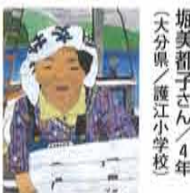 堀美都子さん／4年
（大分県／護江小学校）